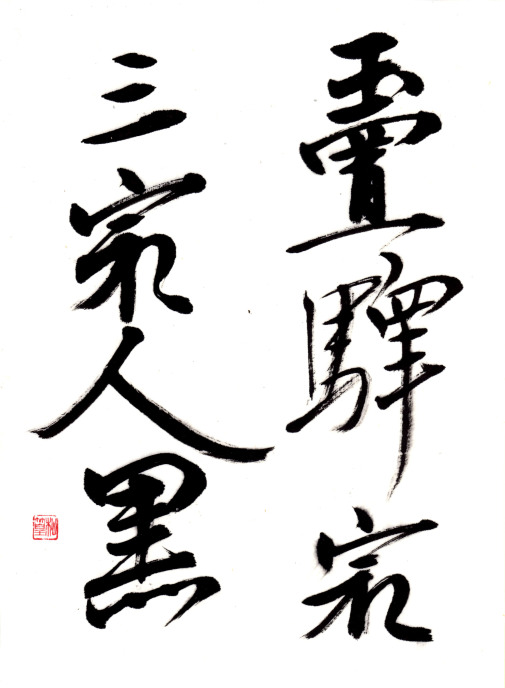 驛家
三家人黒